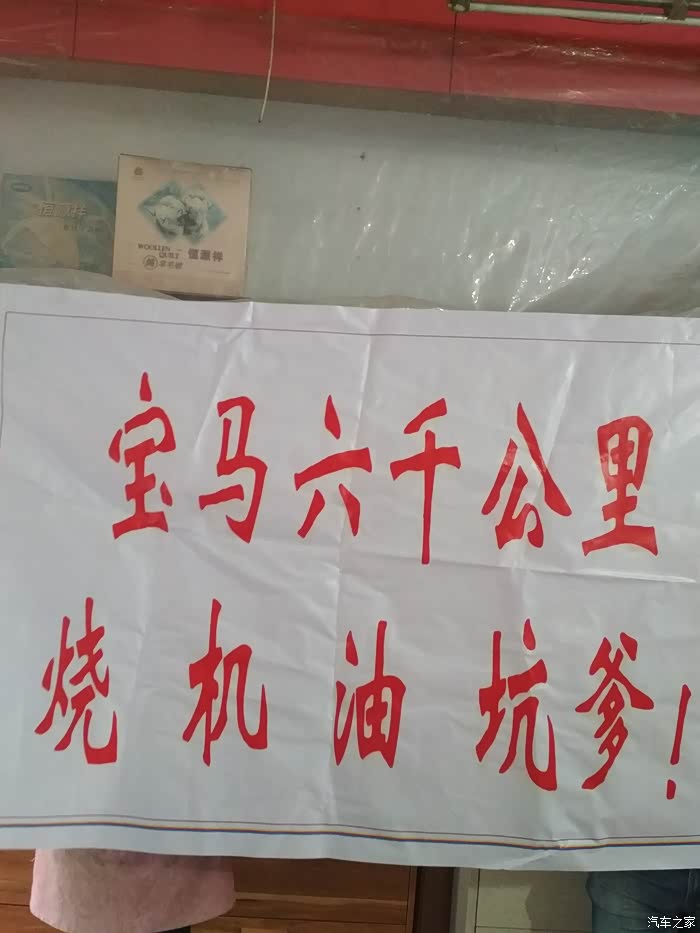 恒源祥
WOOLLEN
QUILT
恒源祥
宝马六千公里
烧机油坑爹!
汽车之家